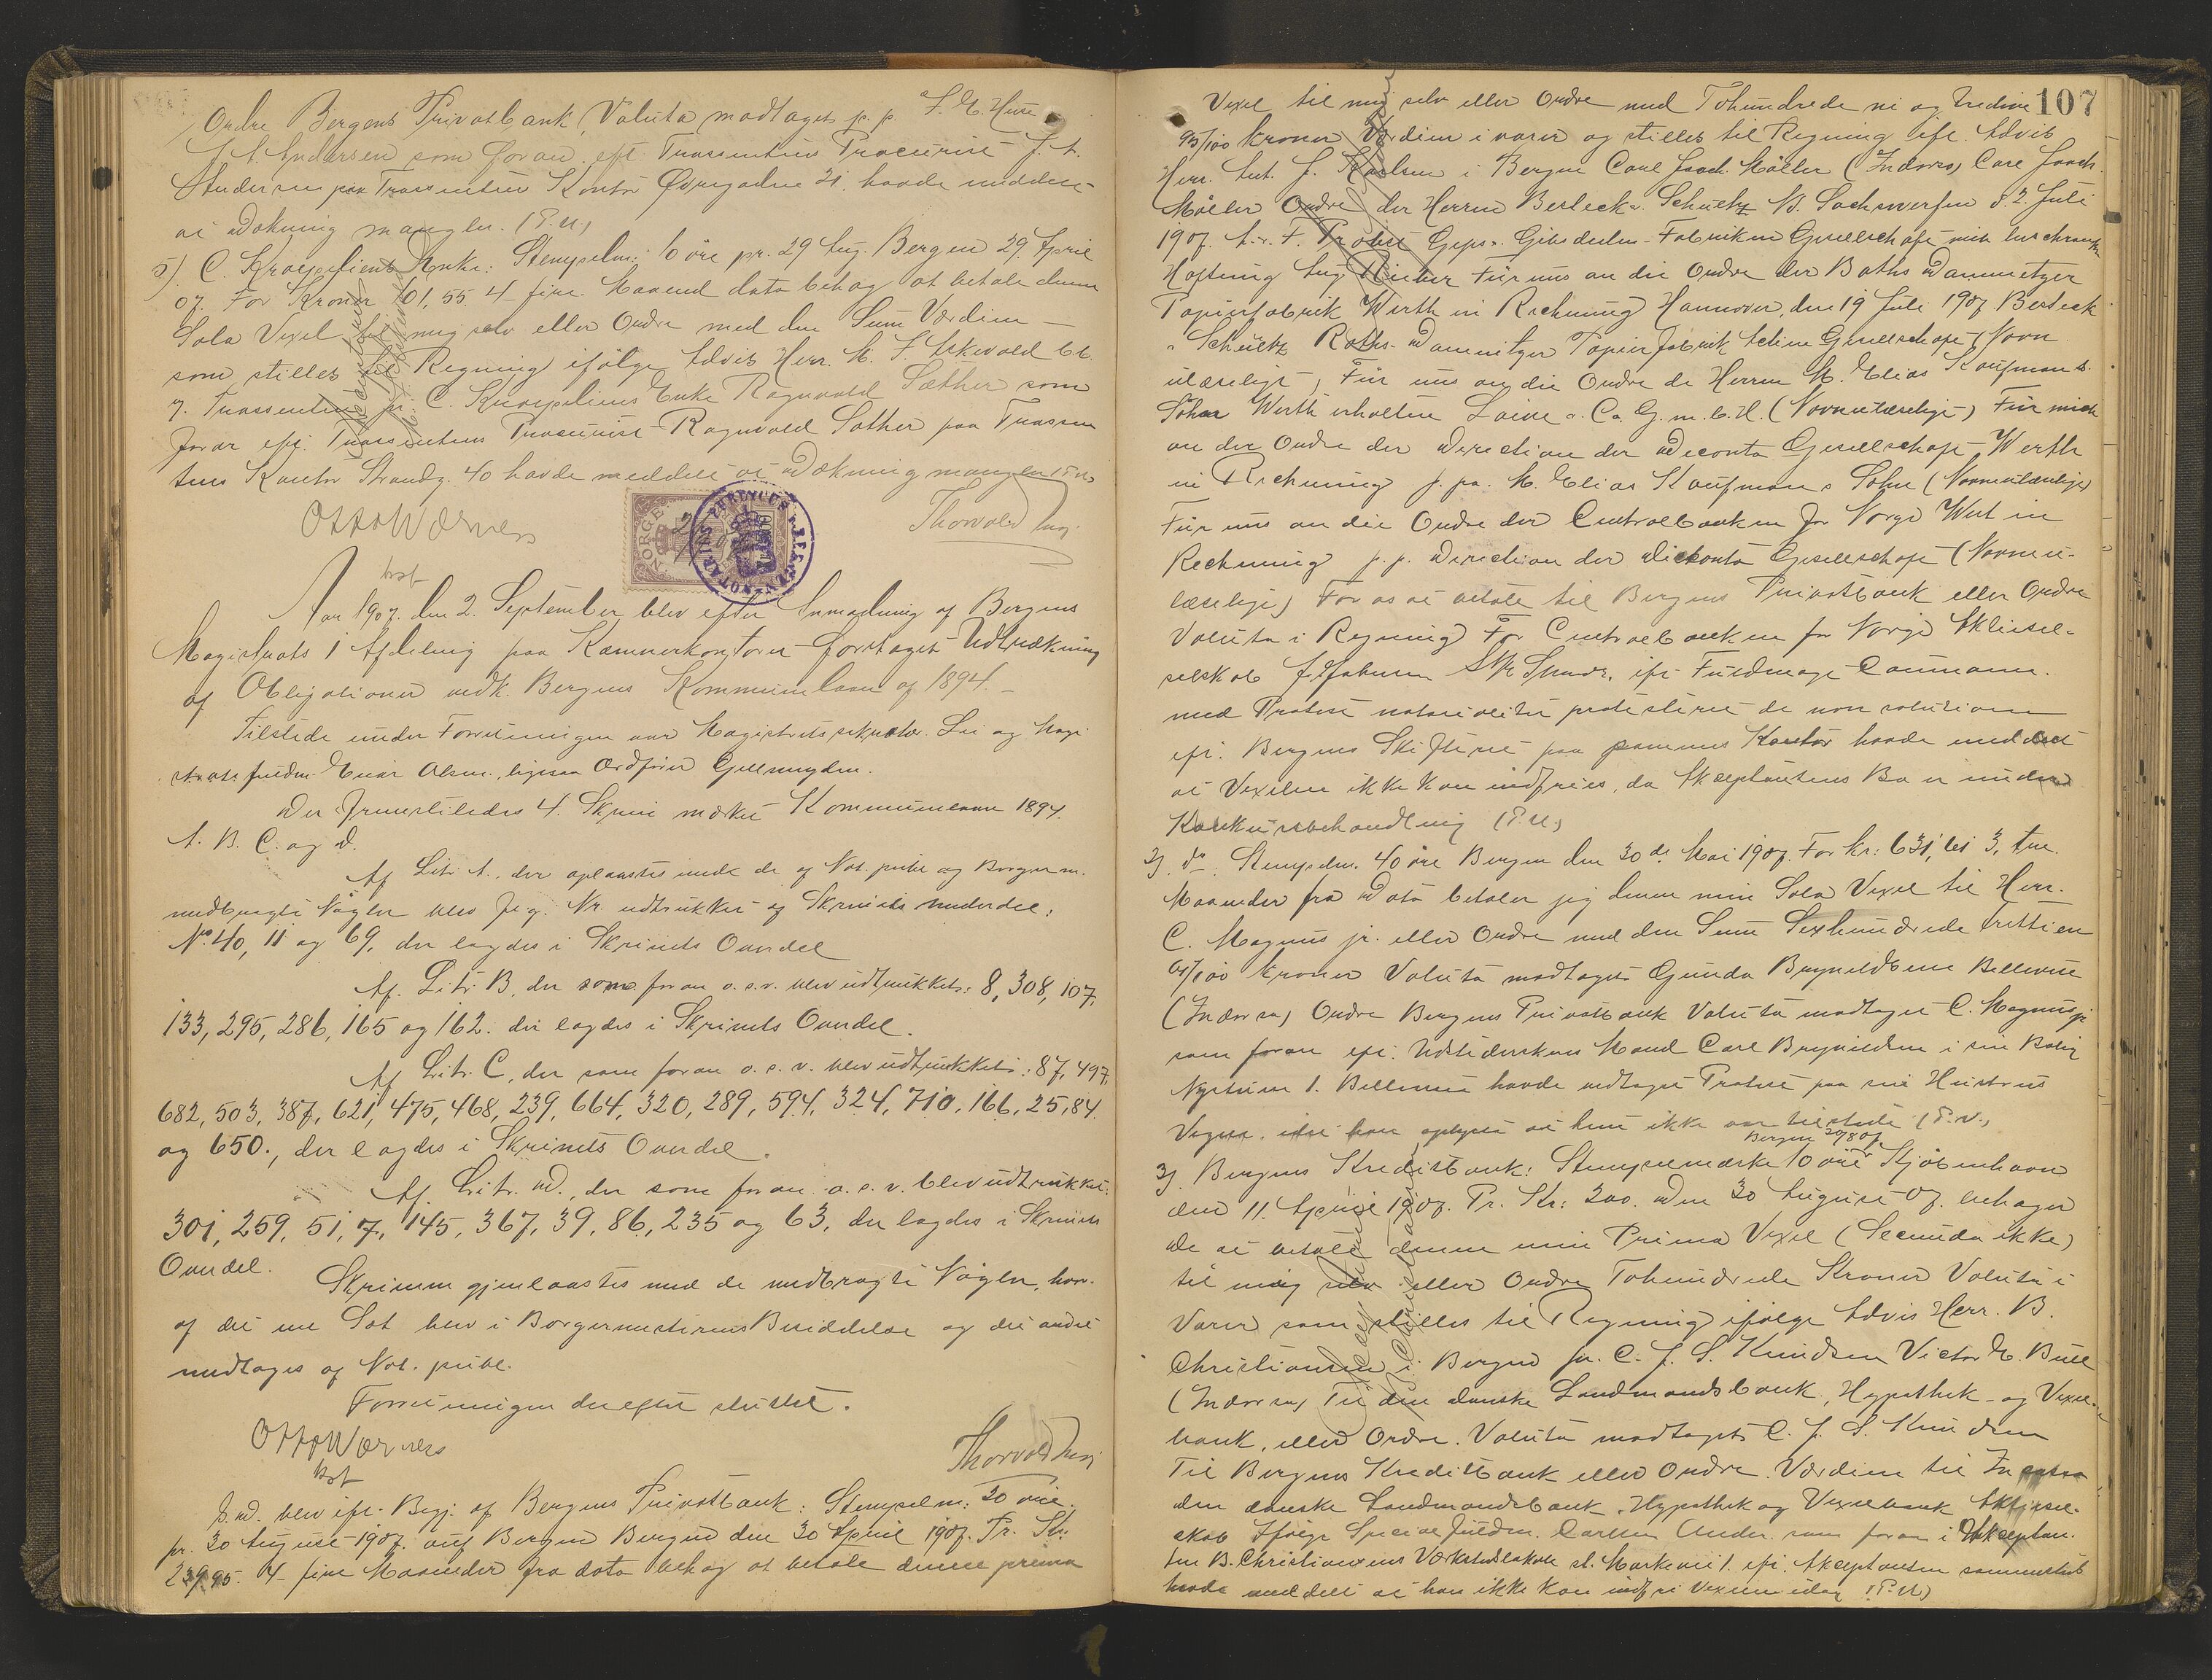 Ordre Bergens Privatbank, Valuta modtaget p. p. F. G. Huse
J. A. Andersen som foran eft. Trassentens Procurist J. A.
Andersen paa Trassentens Kontor Øvregaden 21. havde meddelt
at Dækning mangler. (P.U.)
5). C. Kroepeliens Enke: Stempelm. 10 øre pr. 29 Aug. Bergen 29 April
07. For Kroner 101,55. 4 fire Maaned dato behag at betale denne
Sola Vexel til mig selv eller Ordre med den Sum Værdien
som stilles til Regning ifølge Advis Herr. M. S. Askevold
Trassenten pr. C. Kroepeliens Enke Ragnvald Sæther som
foran eft. Trassentens Procurist Ragnvald Sæther paa Trassen
tens Kontor Strandg. 40 havde meddelt at Dækning mangler (P.U.)
Otto Wærner
kst
NORGE
NOTARIUS PUBLICUS BERGEN
Thorvald
Aar 1907. den 2. September blev efter Anmodning af Bergens
Magistrats 1 Afdeling paa Kæmnerkontoret foretaget Udtrækning
af Obligationer vedk. Bergens Kommunelaan af 1894.
Tilstede under Forretningen var Magistratssekretær Lie og Magi
stratsfuldm. Einar Olsen, ligesaa Ordfører Gjelmuyden.
Der fremstilledes 4. Skrin mærket Kommunelaan 1894.
A. B. C. og D.
Af Litr. A., der oplaastes med de af Not. publ. og Borgerm.
medbragte Nøgler blev flg. Nr. udtrukket af Skrinets underdel:
No. 40, 11 og 69, der lagdes i Skrinets Overdel
Af. Litr. B, der som foran o.s.v. blev udtrukket: 8, 308, 107,
133, 295, 286, 165 og 162. der lagdes i Skrinets Overdel.
Af Litr. C, der som foran o.s.v. blev udtrukket: 87, 497,
682, 503, 387, 621, 475, 468, 239, 664, 320, 289, 594, 324, 710, 166, 25, 84.
og 650., der lagdes i Skrinets Overdel.
Af. Litr. D., der som foran o.s.v. blev udtrukket:
301, 259, 51, 7, 145, 367, 39, 86, 235 og 63, der lagdes i Skrinets
Overdel.
Skrinene gjenlaastes med de medbragte Nøgler, hvor-
af det ene Sæt blev i Borgermesterens Besiddelse og det andet
modtages af Not. publ.
Forretningen derefter sluttet.
Otto Wærner
kst
Thorvald
S. D. blev eft. Begj. af Bergens Privatbank: Stempelm: 20 øre
pr. 30 August 1907. auf Bergen Bergen den 30 April 1907. Pr. Kr.
239.95. 4 fire Maaneder fra dato behag at betale denne prima
107
Vexel til mig selv eller Ordre med Tohundrede ni og tredive
95/100 kroner Værdien i varer og stilles til Regning eft. Advis
Herr. Ant. J. Karlsen i Bergen Carl Joach. Møller (Indorso) Carl Joach.
Møller Ordre der Herren Berleck & Schuetz Nd. Sachswerfen d. 2 Juli
1907. A. & F. Probst Gips- Gibsdielen-Fabriken Gesellschaft mit beschränkter
Haftung Aug. Für uns an die Ordre der Raths Damnitzer
Papierfabrik Werth in Rechnung Hannover, den 19 Juli 1907 Berleck
& Schuetz Raths-Damnitzer Papierfabrik Actien Gesellschaft (Navn
ulæseligt) Für uns an die Ordre de Herren M. Elias Kaufmann &
Sohn Werth erhalten & Co. G.m.b.H. (Navn ulæseligt) Für mich
an der Ordre der Direction der Disconto Gesellschaft Werth
in Rechnung p. pa. M. Elias Kaufmann & Sohn (Navn ulæseligt)
Für uns an die Ordre der Centralbanken for Norge Wert in
Rechnung p.p. Direction der Disconto Gesellschaft (Navn u-
læseligt) For os at betale til Bergens Privatbank eller Ordre
Valuta i Regning For Centralbanken for Norge Aktiesel-
selskab eft. Fuldmagt
med Protest notarialiter protesteret de non solutione
eft. Bergens Skifteret paa sammes Kontor havde meddelt
at Vexelen ikke kan indfries, da Akseptantens Bo er under
Konkursbehandling (P.U.)
2). do. Stempelm. 40 øre Bergen den 30de Mai 1907. For kr: 631,61 3, tre
Maaneder fra Dato betaler jeg denne min Sola Vexel til Herr.
C. Magnus jr. eller Ordre med den Sum Sexhundrede tretti en
61/100 kroner Valuta modtaget Gunda Brynildsen Bellevue
(Indorso) Ordre Bergens Privatbank Valuta modtaget C. Magnus jr
som foran eft. Udstederskens Mand Carl Brynildsen i sin Bolig
havde vedtaget Protest paa sin Hustrus
Vegne, idet han oplyste at hun ikke var tilstede (P.U.)
Bergen 20/8 07.
3). Bergens Kreditbank: Stempelmærke 10 øre Kjøbenhavn
den 11. April 1907. Pr. Kr: 200. Den 30 August 07. behager
De at betale denne min Prima Vexel (Secunda ikke)
til mig selv eller Ordre Tohundrede Kroner Valuta i
Varer som stilles til Regning ifølge Advis Herr. B.
Christiansen i Bergen pr. C. J. S. Knudsen Victor E. Bull
(Indorso) Til den danske Landmandsbank, Hypothek- og Vexel-
bank, eller Ordre. Valuta modtaget C. J. S. Knudsen
Til Bergens Kreditbank eller Ordre. Værdien til Incasso
den danske Landmandsbank, Hypothek og Vexelbank Aktiesel-
skab Ifølge Special fuldm. Carlsen Ander. som foran i Akseptan-
ten B. Christiansens Værkstedslokale eft. Akseptanten sammesteds
havde meddelt at han ikke kan indfri Vexelen idag (P.U.)